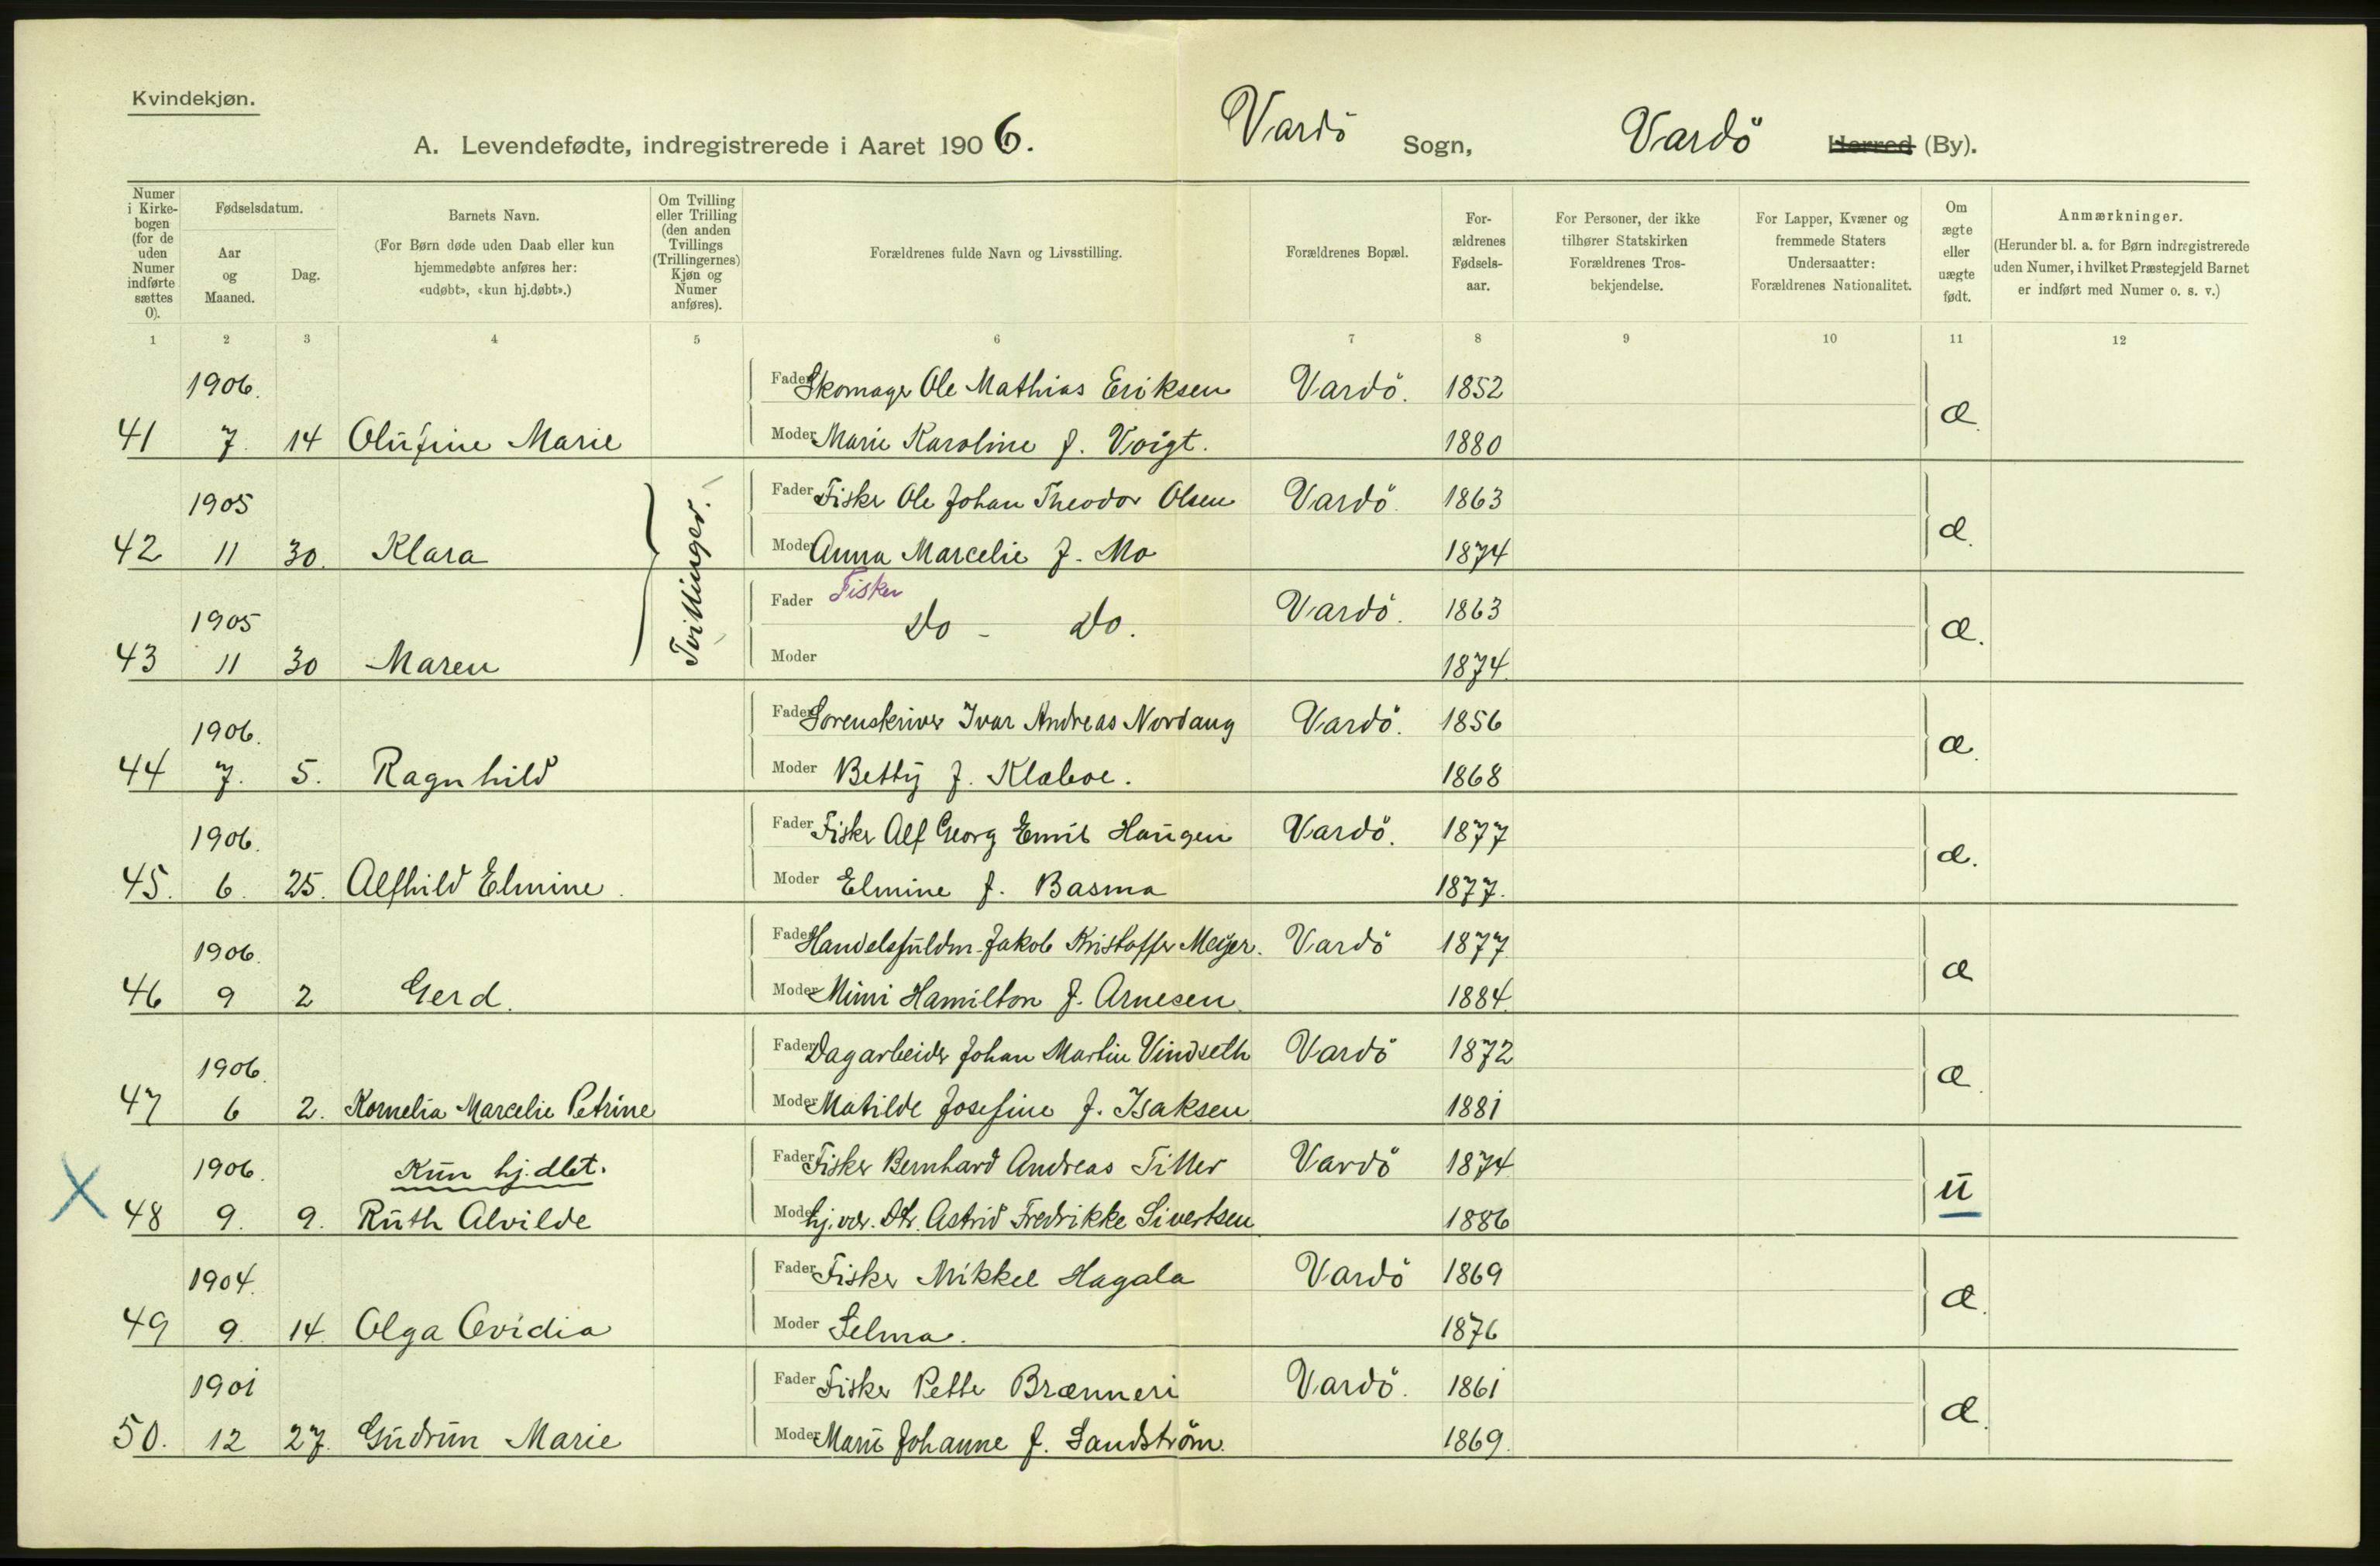 Kvindekjøn.
A. Levendefødte, indregistrerede i Aaret 1906.
Vardö Sogn, Vardö Herred (By).
Numer i Kirkebogen (for de uden Numer indførte sættes 0).
Fødselsdatum.
Aar og Maaned.
Dag.
Barnets Navn.
(For Børn døde uden Daab eller kun hjemmedøbte anføres her: «udøbt», «kun hj.døbt».)
Om Tvilling eller Trilling (den anden Tvillings (Trillingernes) Kjøn og Numer anføres).
Forældrenes fulde Navn og Livsstilling.
Forældrenes Bopæl.
Forældrenes Fødselsaar.
For Personer, der ikke tilhører Statskirken Forældrenes Trosbekjendelse.
For Lapper, Kvæner og fremmede Staters Undersaatter: Forældrenes Nationalitet.
Om ægte eller uægte født.
Anmærkninger.
(Herunder bl. a. for Børn indregistrerede uden Numer, i hvilket Præstegjeld Barnet er indført med Numer o. s. v.)
1 2 3 4 5 6 7 8 9 10 11 12
1906. Fader Skomager Ole Mathias Eriksen Vardö. 1852 æ.
41 7. 14 Olufine Marie Moder Marie Karoline f. Voigt. 1880
1905 Tvillinger. Fader Fisker Ole Johan Theodor Olsen Vardö. 1863 æ.
42 11 30. Klara Moder Anna Marcelie f. Mo 1874
1905 Fader Fisker Do - Do. Vardö. 1863 æ.
43 11 30 Maren Moder 1874.
1906. Fader Sorenskriver Ivar Andreas Nordang Vardö. 1856 æ.
44 7. 5. Ragnhild Moder Betty f. Klæboe. 1868
1906. Fader Fisker Alf Georg Emil Haugen Vardö. 1877 æ.
45. 6. 25. Alfhild Elmine. Moder Elmine f. Basma 1877.
1906. Fader Handelsfuldm. Jakob Kristoffer Meyer. Vardö 1877 æ
46 9 2 Gerd. Moder Mimi Hamilton f. Arnesen. 1884.
1906. Fader Dagarbeider Johan Martin Vindseth Vardö 1872 æ.
47 6 2. Kornelia Marcelie Petrine Moder Matilde Josefine f. Isaksen. 1881
1906. Kun hj.dbt. Fader Fisker Bernhard Andreas Tiller Vardö 1874. u
X 48 9. 9. Ruth Alvilde Moder hj.vær. Dtr. Astrid Fredrikke Sivertsen 1886
1904. Fader Fisker Mikkel Hagala Vardö 1869 æ.
49 9. 14. Olga Ovidia Moder Selma. 1876
1901 Fader Fisker Petter Brænneri Vardö. 1861 æ.
50. 12 27. Gudrun Marie Moder Marie Johanne f. Sandström. 1869.